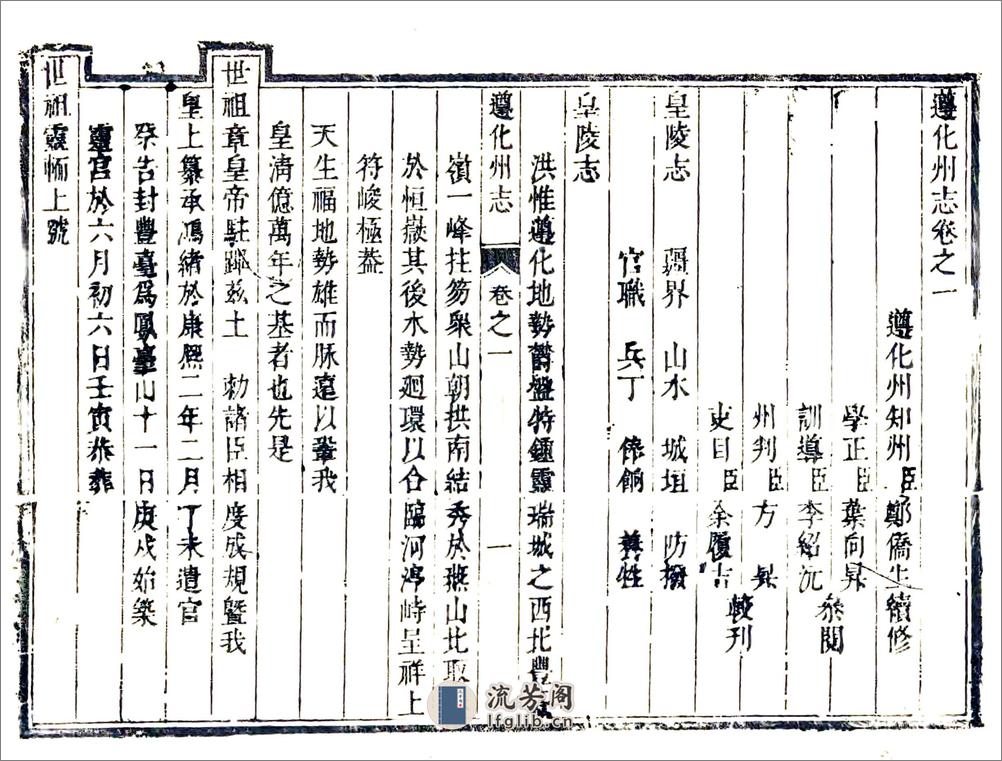 遵化州志卷之一
遵化州知州臣鄭僑生續修
學正臣葉向昇
訓導臣李紹沆
叅閱
州判臣方
吏目臣余履吉
較刊
皇陵志 疆界 山水 城垣 防撥
官職 兵丁 俸餉 養牲
皇陵志
洪惟遵化地勢欝盤特鍾靈瑞城之西北豐
遵化州志 卷之一 一
嶺一峰拄笏衆山朝拱南結秀於燕山北取
於恒嶽其後水勢廻環以合臨河渟峙呈祥上
符峻極葢
天生福地勢雄而脉遠以鞏我
皇淸億萬年之基者也先是
世祖章皇帝駐蹕玆土 勅諸臣相度成規曁我
皇上纂承鴻緒於康熈二年二月丁未遣官
祭告封豐臺爲鳳臺山十一日庚戌始築
靈宫於六月初六日壬寅恭葬
世祖 上號
流芳阁
lfglib.cn